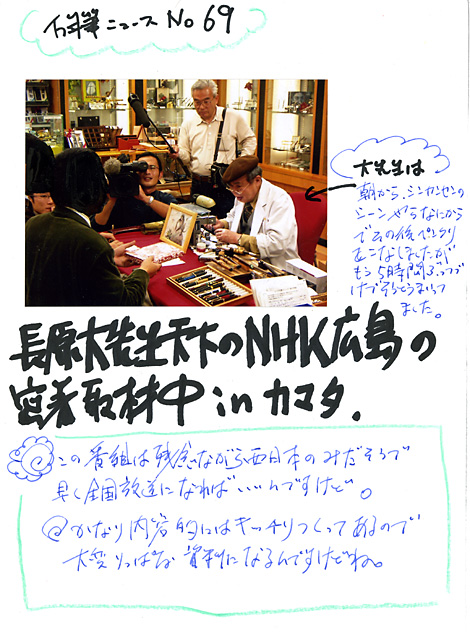 万年筆ニュース No 69
大先生は
朝から、シンカンセンの
シーンやらなにから
でその後ペンクリ
をこなしましたが
もう5時間ぶっつづ
けでそうとうまいって
ました。
長原大先生天下のNHK広島の
密着取材中 in カマタ.
この番組は残念ながら西日本のみだそうで
早く全国放送になればいいんですけど。
かなり内容的にはキッチリつくってあるので
大変りっぱな資料になるんですけどね。